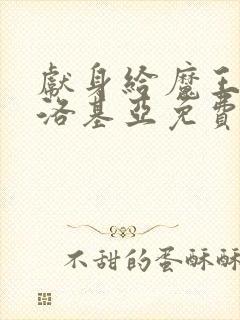 獻身給魔王
洛基亞免費
不甜的蛋酥酥